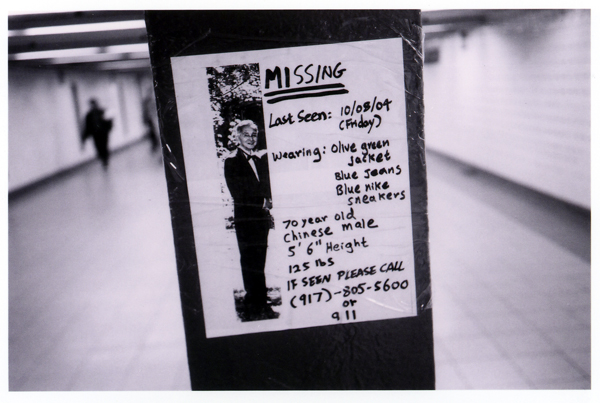 MISSING
Last Seen: 10/08/04
(Friday)
Wearing: Olive green
Jacket
Blue Jeans
Blue nike
sneakers
70 year old
Chinese male
5' 6" Height
125 lbs
IF SEEN PLEASE CALL
(917)-805-5600
or
911